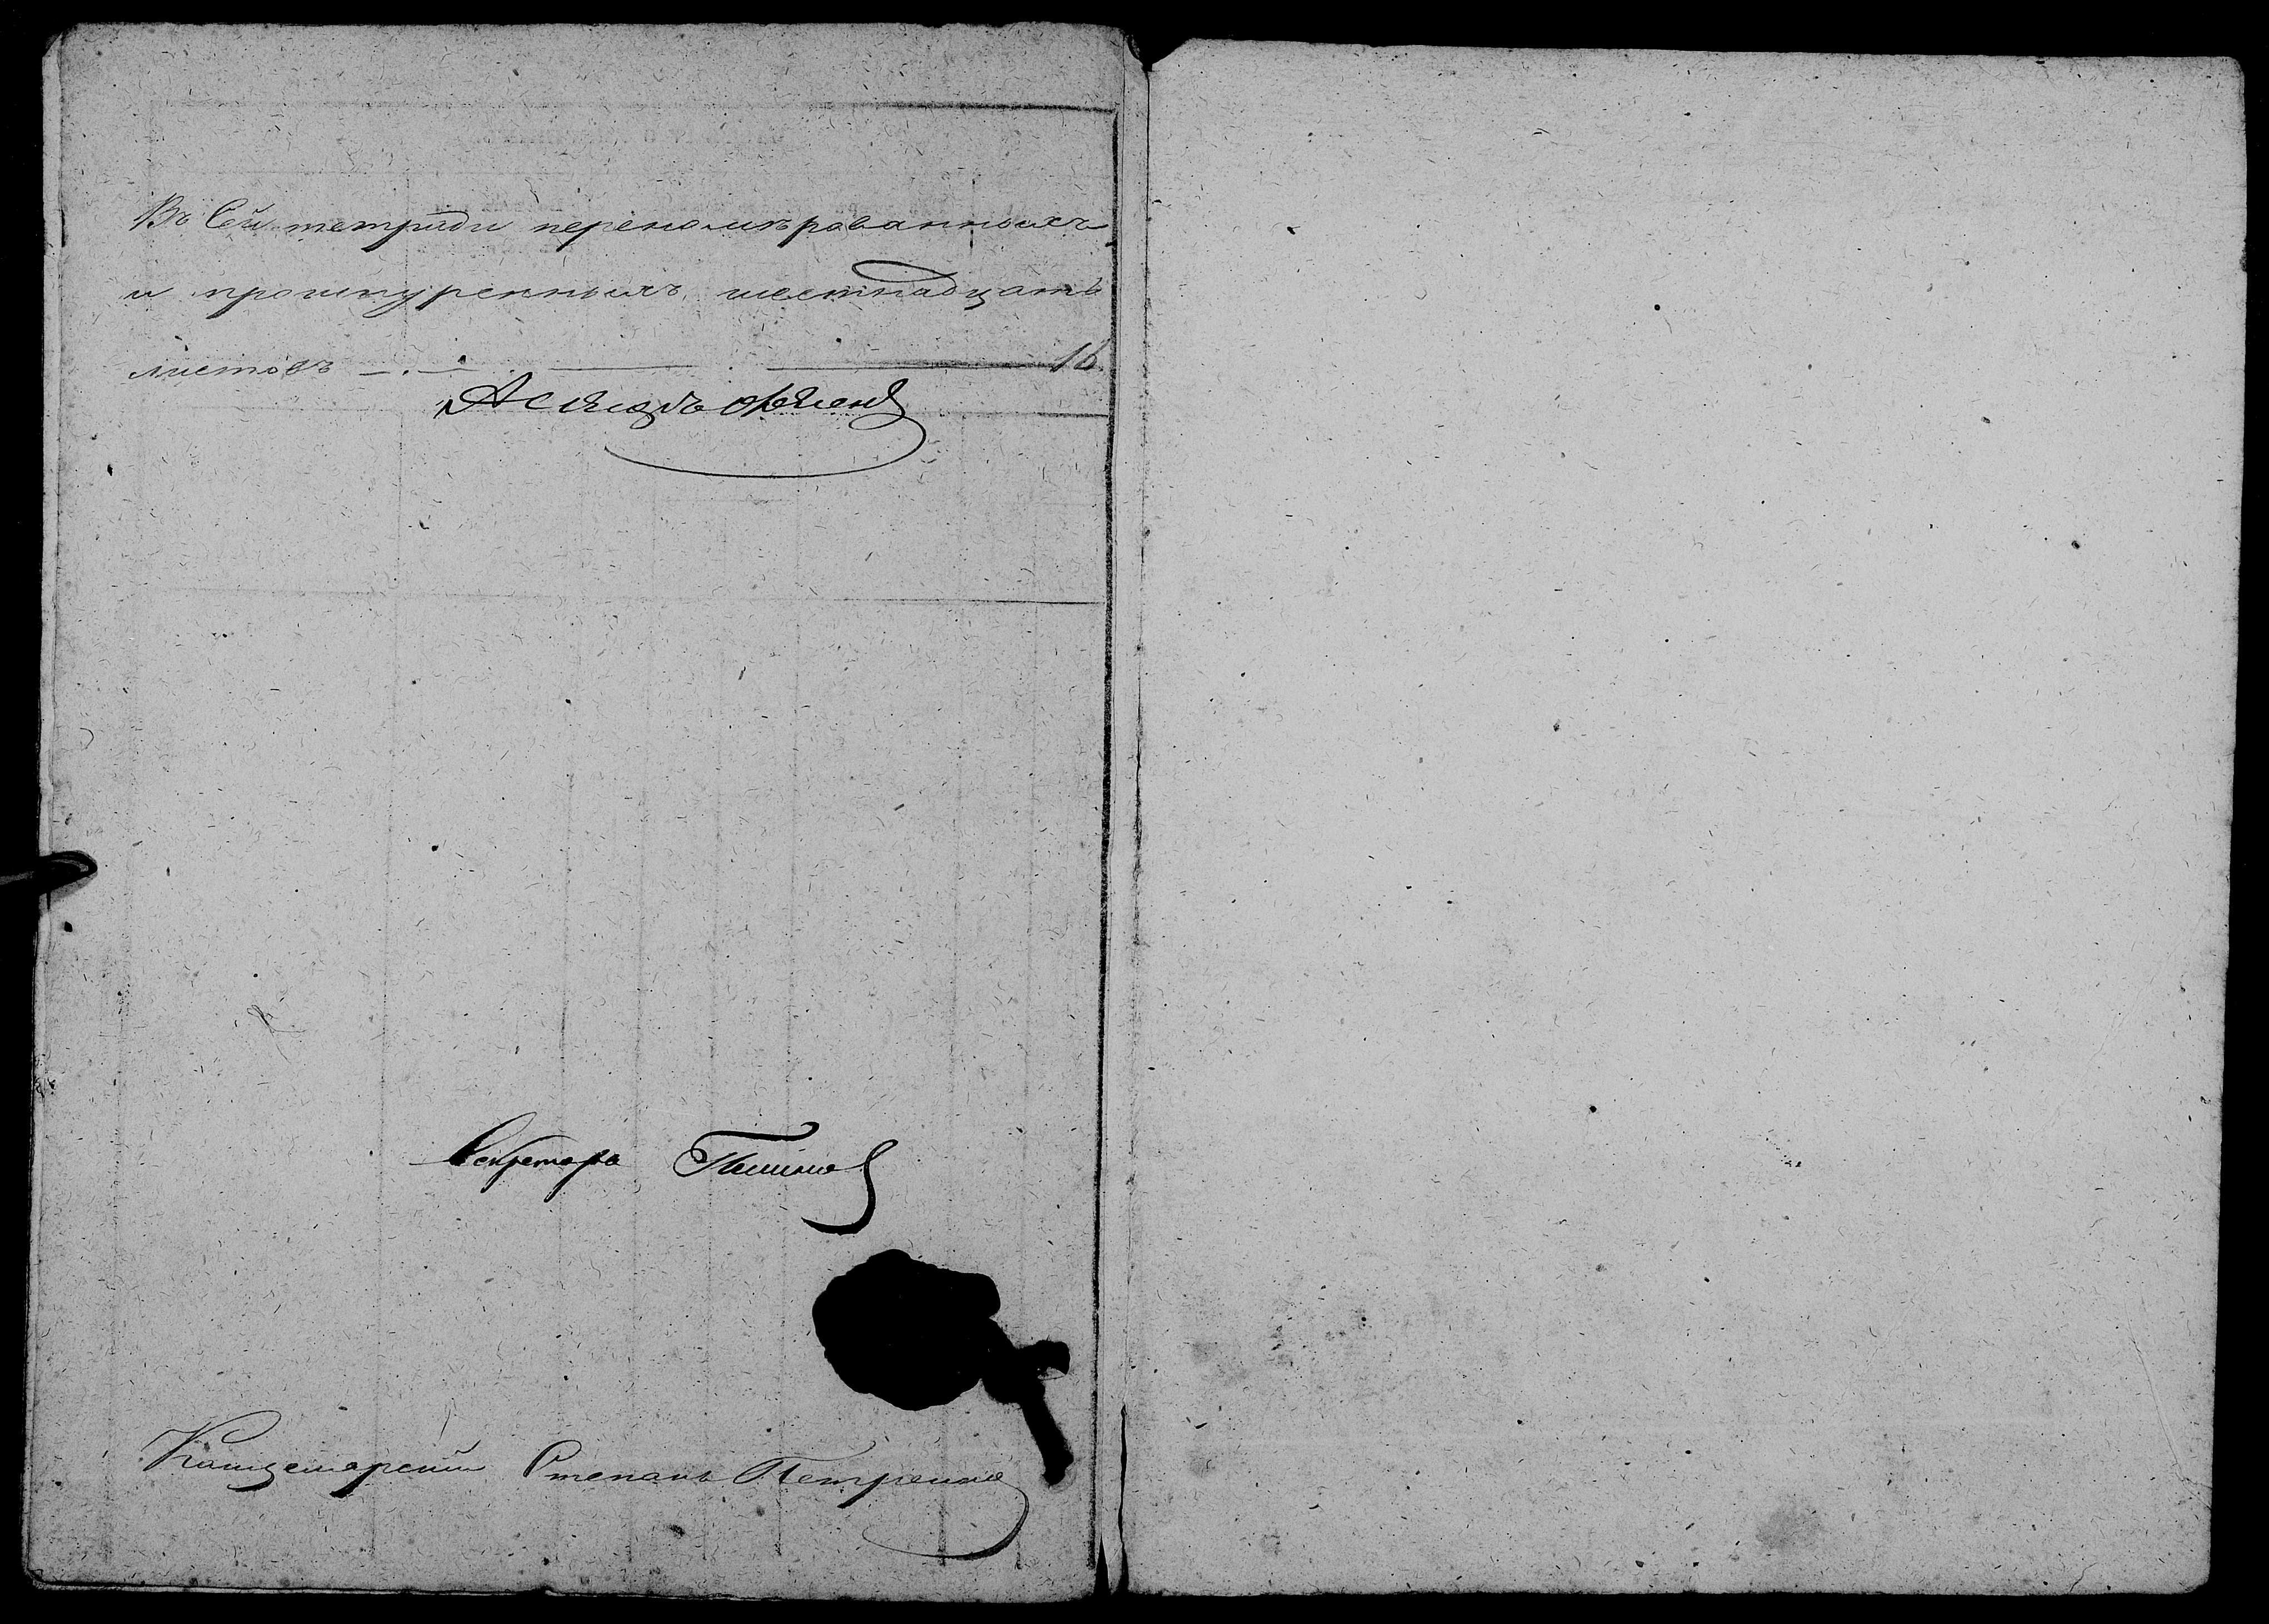 Въ Сей тетради переномѣрованныхъ
и прошнуренныхъ шестнадцать
листовъ 16.
Секретарь
Канцелярскій Степанъ Петренко